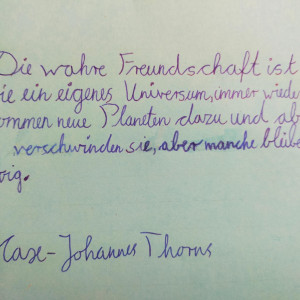 Die wahre Freundschaft ist
ie ein eigenes Universum, immer wieder
ommen neue Planeten dazu und ab
verschwinden sie, aber manche bleibe
wig.
Max-Johannes Thorns